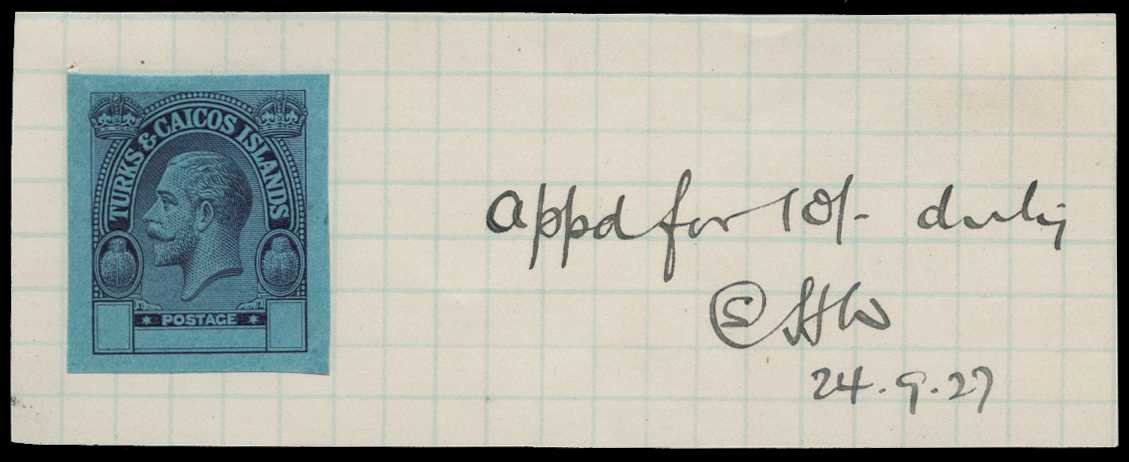 TURKS & CAICOS ISLANDS
POSTAGE
appd for 10/- duty
EHW
24.9.27